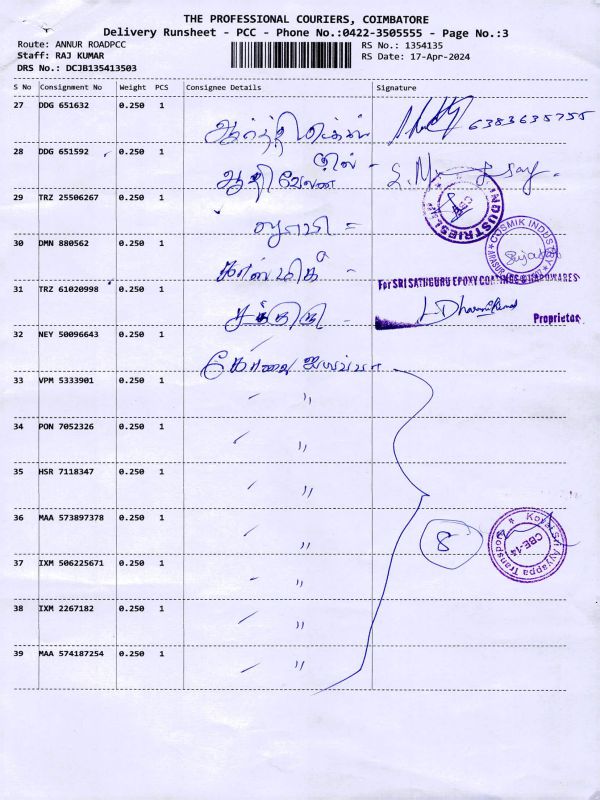 THE PROFESSIONAL COURIERS, COIMBATORE
Delivery Runsheet - PCC - Phone No.:0422-3505555 - Page No.:3
Route: ANNUR ROADPCC
Staff: RAJ KUMAR
DRS No.: DCJB135413503
RS No.: 1354135
RS Date: 17-Apr-2024
S No Consignment No Weight PCS Consignee Details Signature
27 DDG 651632 0.250 1 6383635755
28 DDG 651592 0.250 1
29 TRZ 25506267 0.250 1
INDUSTRIES
30 DMN 880562 0.250 1
COSMIK INDUSTRY
31 TRZ 61020998 0.250 1 சக்தி
For SRI SATHGURU EPOXY COATINGS & HARDWARES
Proprietor
32 NEY 50096643 0.250 1 கோவை ஐயப்பா
33 VPM 5333901 0.250 1 "
34 PON 7052326 0.250 1 "
35 HSR 7118347 0.250 1 "
36 MAA 573897378 0.250 1 " 8
Kovai Sri Ayyappa Transport
CBE-14
37 IXM 506225671 0.250 1 "
38 IXM 2267182 0.250 1 "
39 MAA 574187254 0.250 1 "